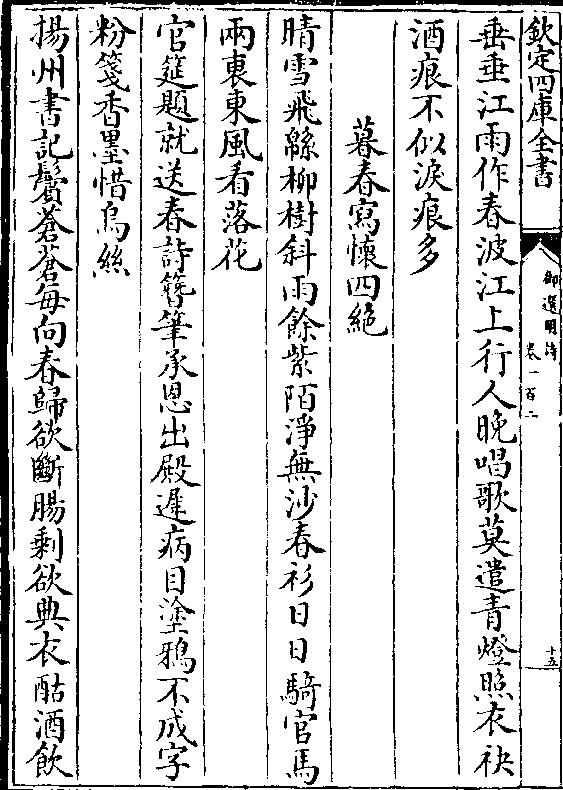 欽定四庫全書
御選明詩
卷一百二
十五
垂垂江雨作春波江上行人晚唱歌莫遣青燈照衣袂
酒痕不似淚痕多
暮春寫懷四絶
晴雪飛緜柳樹斜雨餘紫陌淨無沙春衫日日騎官馬
兩裏東風看落花
官筵題就送春詩簪筆承恩出殿遲病目塗鴉不成字
粉箋香墨惜烏絲
揚州書記鬢蒼蒼每向春歸欲斷腸剩欲典衣酤酒飲